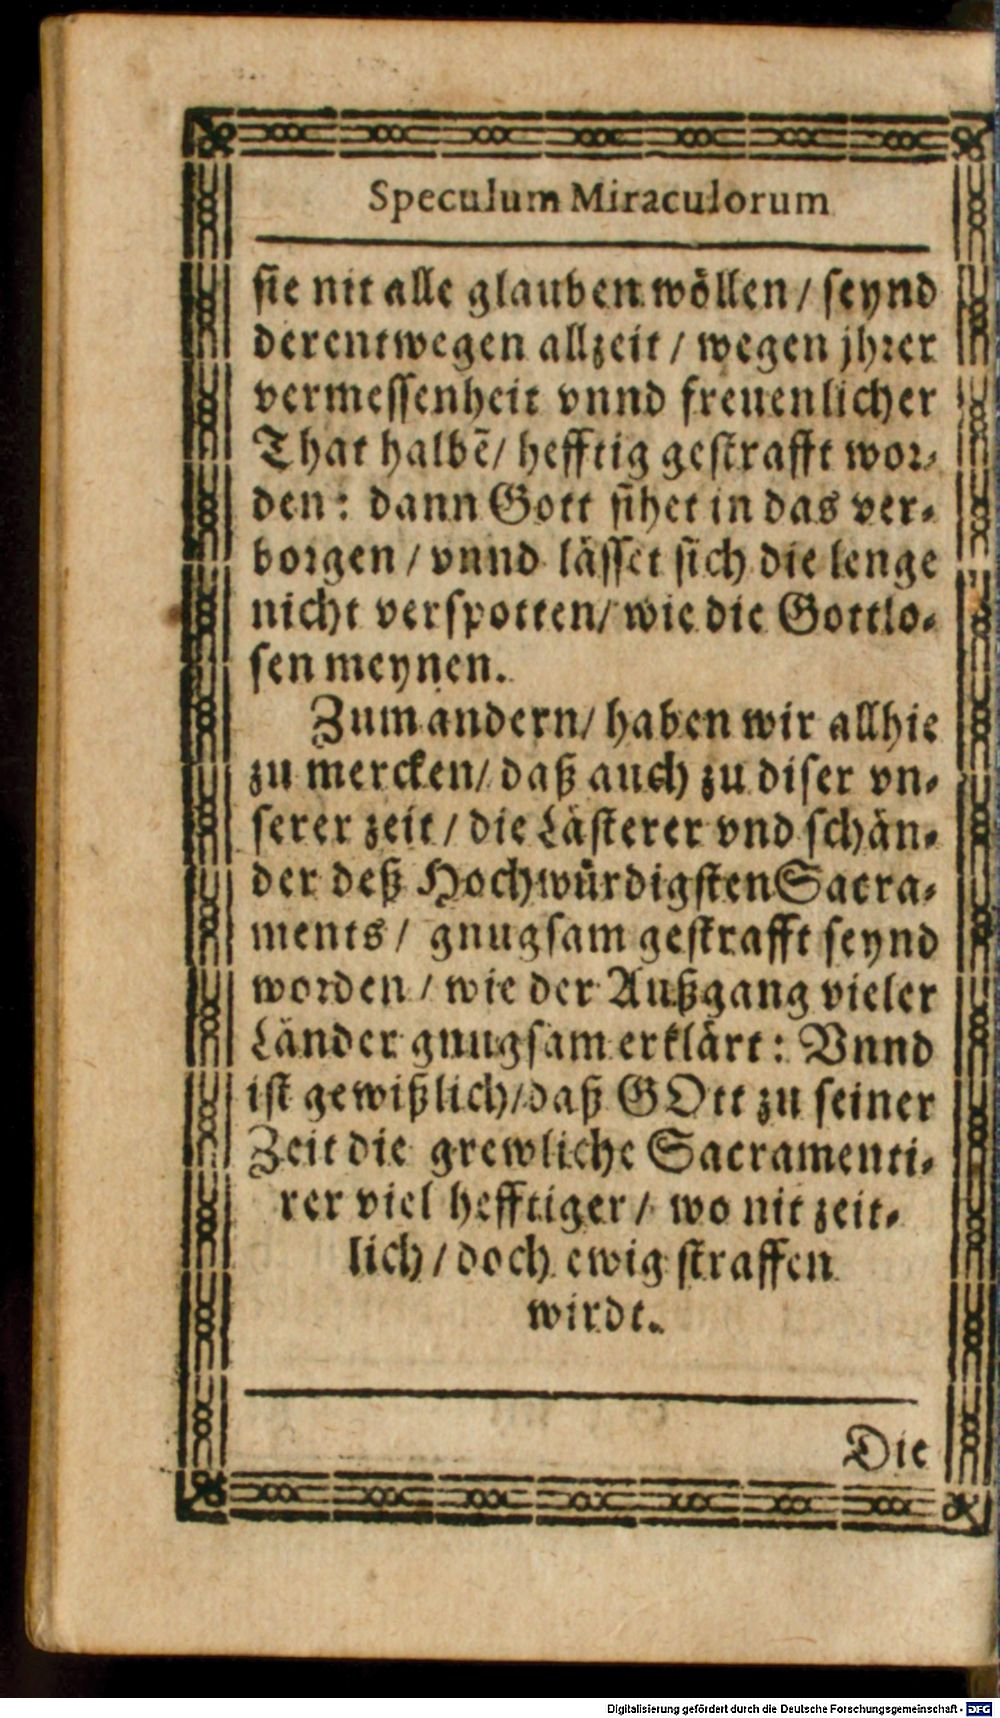 Speculum Miraculorum
sie nit alle glauben wöllen / seynd
derentwegen allzeit / wegen jhrer
vermessenheit vnnd freuenlicher
That halbẽ / hefftig gestrafft wor-
den: dann Gott sihet in das ver-
borgen / vnnd lässet sich die lenge
nicht verspotten / wie die Gottlo-
sen meynen.
Zum andern / haben wir allhie
zu mercken / daß auch zu diser vn-
serer zeit / die Lästerer vnd schän-
der deß Hochwürdigsten Sacra-
ments / gnugsam gestrafft seynd
worden / wie der Außgang vieler
Länder gnugsam erklärt: Vnnd
ist gewißlich / daß GOtt zu seiner
Zeit die grewliche Sacramenti-
rer viel hefftiger / wo nit zeit-
lich / doch ewig straffen
wirdt.
Die
Digitalisierung gefördert durch die Deutsche Forschungsgemeinschaft - DFG